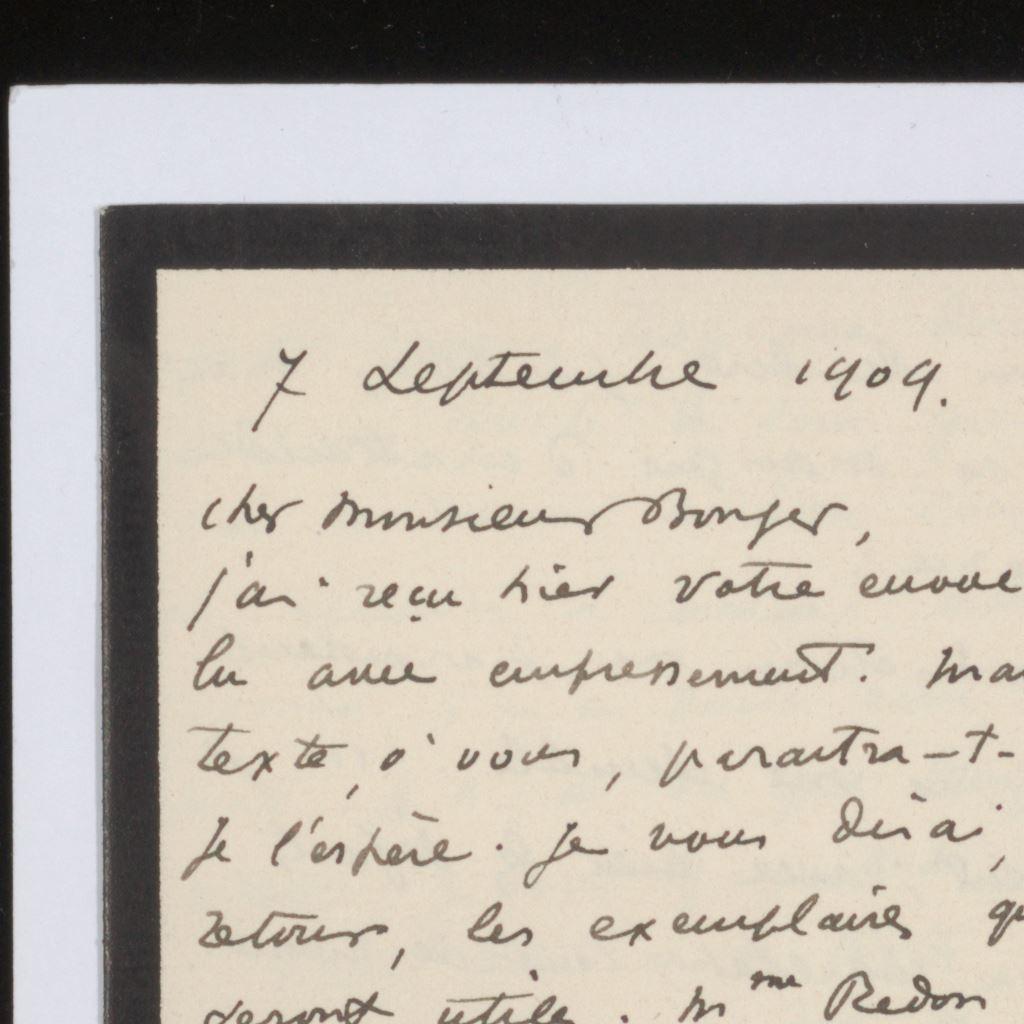 7 Septembre 1909.
cher Monsieur Bonger,
j'ai reçu hier votre
lu avec empressement.
texte, à vous, paraitra-t-
je l'espère. Je vous dirai,
retour, les exemplaires
seront utile. Mme Redon